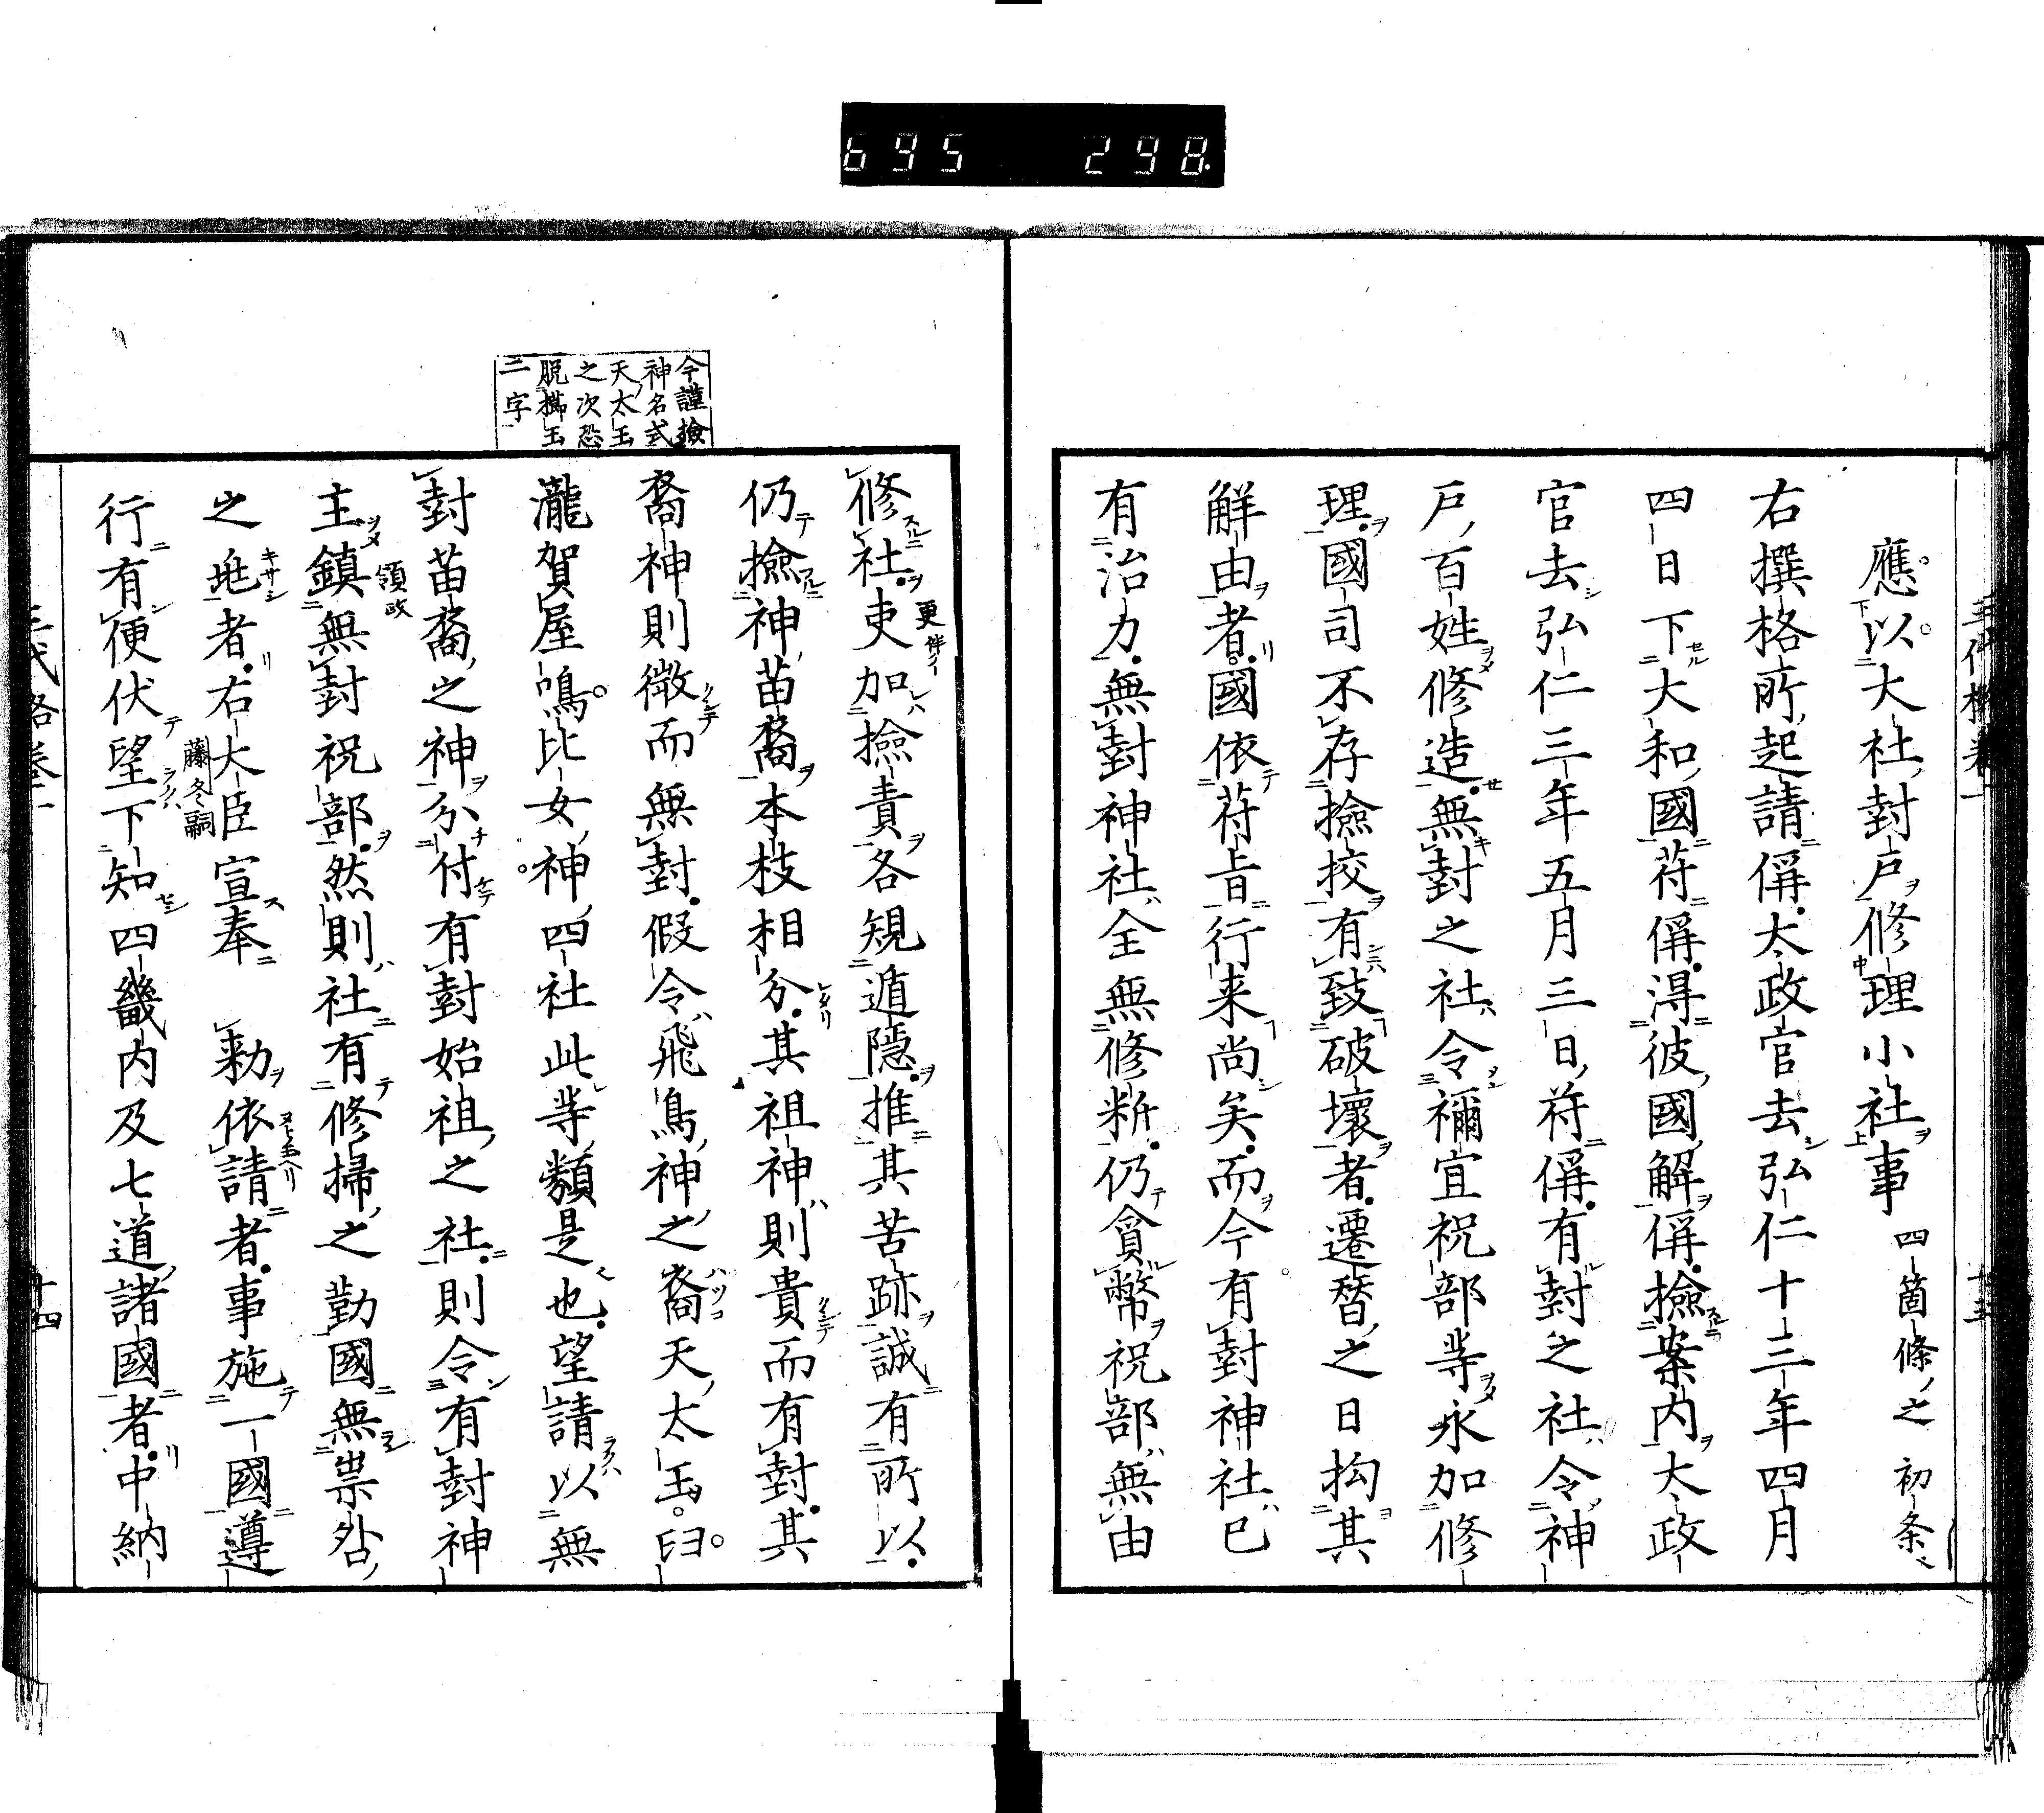 695 298
應以大社封戸修理小社事 四箇條之初条
右撰格所起請偁太政官去弘仁十三年四月
四日下大和國苻偁淂彼國解偁撿案内太政
官去弘仁三年五月三日苻偁有封之社令神
戸百姓修造無封之社令禰宜祝部䓁永加修
理國司不存撿挍有致破壞者遷替之日拘其
觧由者國依苻旨行来尚矣而今有封神社已
有治力無封神社全無修䉼仍貪幣祝部無由
今謹撿
神名式
天太玉
之次恐
脱櫛玉
二字
修社吏加撿責各規遁隠推其苦跡誠有所以
仍撿神苗裔本枝相分其祖神則貴而有封其
裔神則微而無封假令飛鳥神之裔天太玉臼
瀧賀屋鳴比女神四社此䓁類是也望請以無
封苗裔之神分付有封始祖之社則令有封神
主鎮無封祝部然則社有修掃之勤國無祟咎
領政
之兆者右大臣宣奉 勅依請者事施一國遵
藤冬嗣
行有便伏望下知四畿内及七道諸國者中納
十四